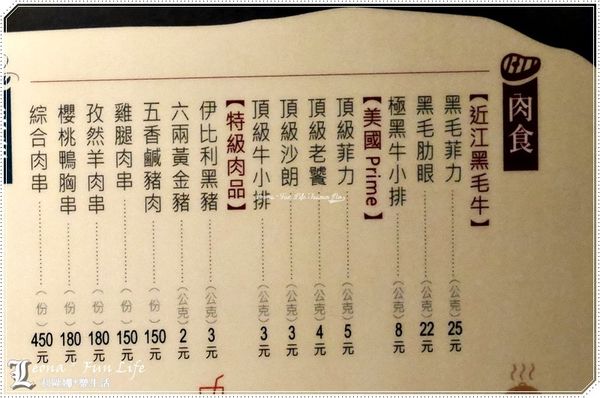 肉食
【近江黑毛牛】
黑毛菲力 (公克) 25元
黑毛肋眼 (公克) 22元
極黑牛小排 (公克) 8元
【美國 Prime】
頂級菲力 (公克) 5元
頂級老饕 (公克) 4元
頂級沙朗 (公克) 3元
頂級牛小排 (公克) 3元
【特級肉品】
伊比利黑豬 (公克) 3元
六兩黃金豬 (公克) 2元
五香鹹豬肉 (份) 150元
雞腿肉串 (份) 150元
孜然羊肉串 (份) 180元
櫻桃鴨胸串 (份) 180元
綜合肉串 (份) 450元
Leona Fun Life